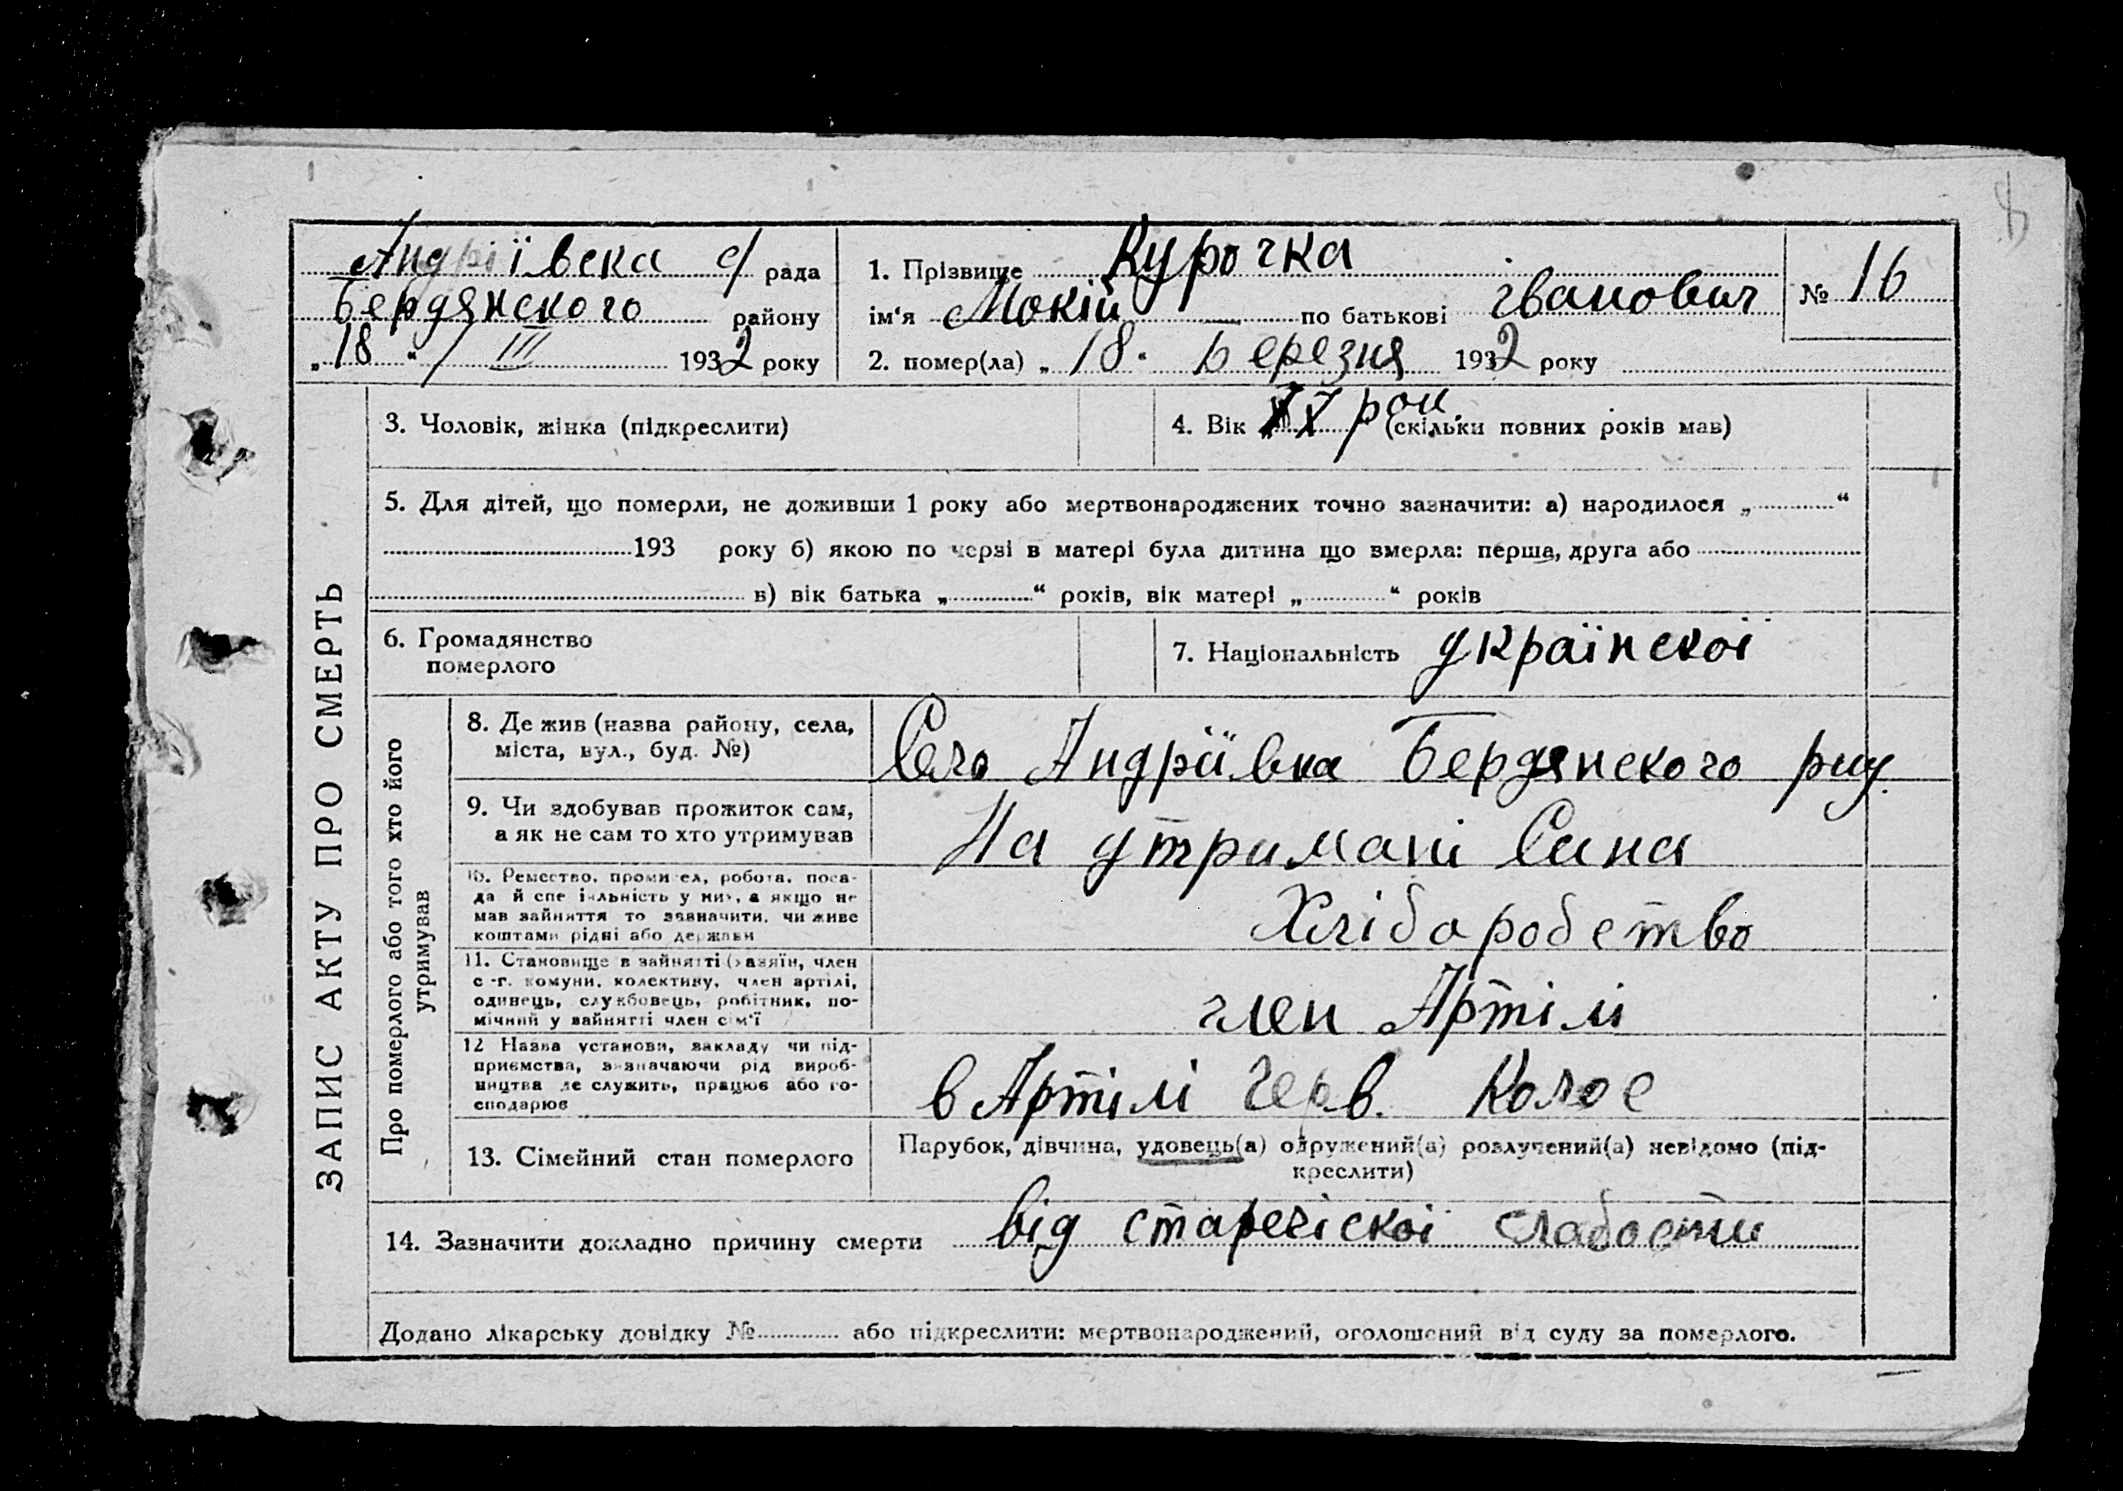 Андріївська с/ рада
Бердянского району
„18“ / III 1932 року
1. Прізвище Курочка
ім‘я Мокій по батькові Іванович
№ 16
2. помер(ла) „18“ Березня 1932 року
ЗАПИС АКТУ ПРО СМЕРТЬ
3. Чоловік, жінка (підкреслити)
4. Вік рок. (скільки повних років мав)
5. Для дітей, що померли, не доживши 1 року або мертвонароджених точно зазначити: а) народилося „ “
193 року б) якою по черзі в матері була дитина що вмерла: перша, друга або
в) вік батька „ “ років, вік матері „ “ років
6. Громадянство
померлого
7. Національність Українскої
Про померлого або того хто його
утримував
8. Де жив (назва району, села,
міста, вул., буд. №)
Село Андріївка Бердянского
9. Чи здобував прожиток сам,
а як не сам то хто утримував
На утримані Сина
10. Ремество, промисел, робота, поса-
да й спеціяльність у ній, а якщо не
мав зайняття то зазначити, чи живе
коштами рідні або держави
Хліборобство
11. Становище в зайнятті (хазяїн, член
с.-г. комуни, колективу, член артілі,
одинець, службовець, робітник, по-
мічний у зайнятті член сім‘ї
член Артілі
12 Назва установи, закладу чи під-
приємства, зазначаючи рід вироб-
ництва де служить, працює або го-
сподарює
в Артілі Черв. Колос
13. Сімейний стан померлого
Парубок, дівчина, удовець(а) одружений(а) розлучений(а) невідомо (під-
креслити)
14. Зазначити докладно причину смерти від старечіскої слабости
Додано лікарську довідку № або підкреслити: мертвонароджений, оголошений від суду за померлого.